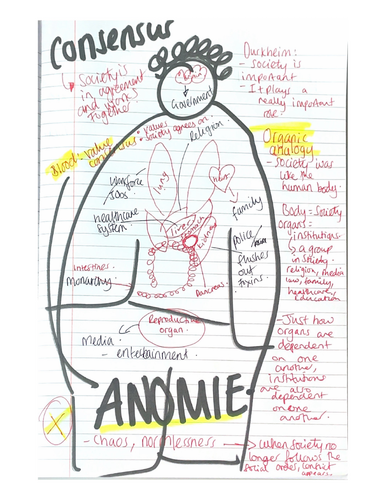 Consensus
↳ Society is
in agreement
and works
together
Government
Durkheim:
- society is
important
- It plays a
really important
role.
Blood: value
consensus
: values
society agrees on.
Religion
Organic
analogy
- society was
like the
human body.
Body = Society
organs =
institutions
↳ a group
in society.
religion, media
law, family,
healthcare,
education
lung
heart
family
workforce
Jobs
healthcare
system
liver
stomach
Kidney
police/
flushes
out
toxins.
intestines
monarchy
Pancreas
Reproductive
organ
media
- entertainment
- Just how
organs are
dependent
on one
another,
institutions
are also
dependent
on one
another.
ANOMIE
X
- chaos, normlessness → when society no
longer follows the
social order, conflict
appears